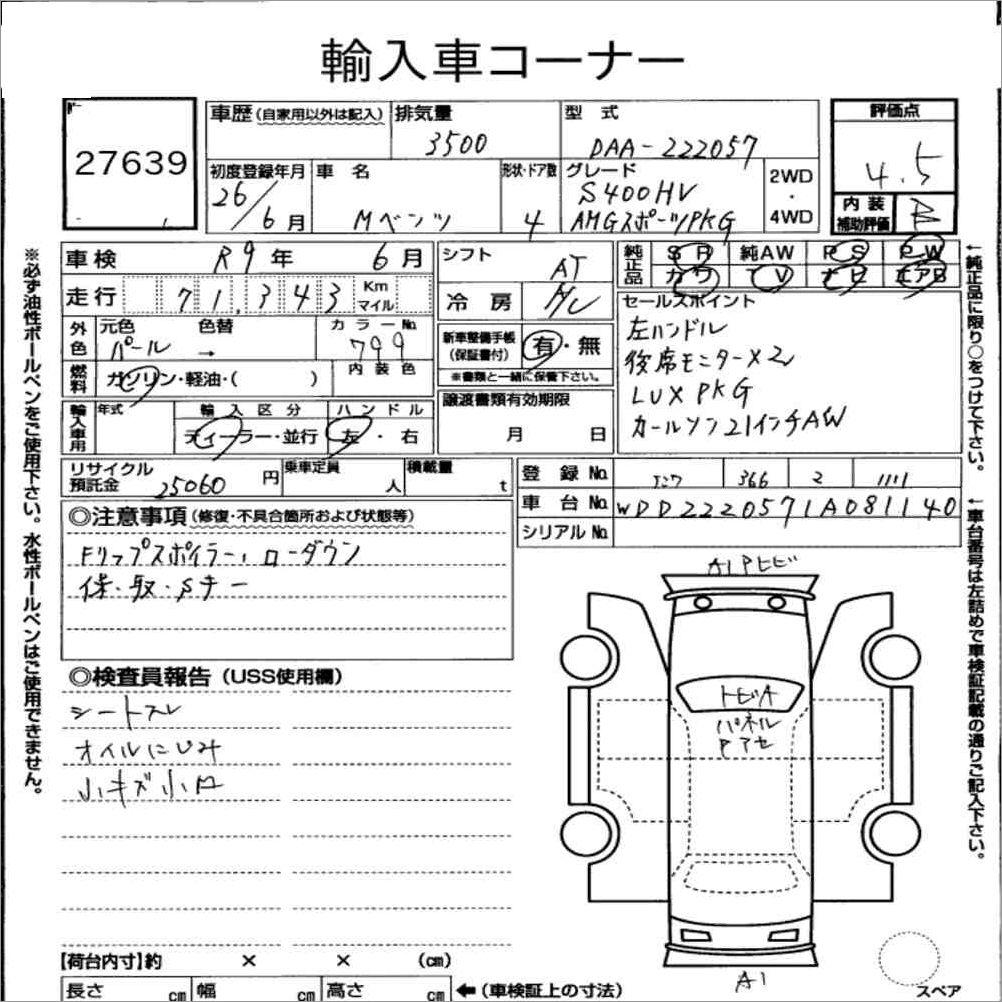 輸入車コーナー
27639
車歴(自家用以外は記入)
排気量
3500
型式
DAA-222057
評価点
4.5
初度登録年月
26/6月
車名
Mベンツ
形状・ドア数
4
グレード
S400HV
AMGスポーツPKG
2WD
・
4WD
内装
補助評価
B
車検
R9年 6月
シフト
AT
純正品
SR
純AW
PS
PW
カワ
TV
ナビ
エアB
走行
71,343
Km
マイル
冷房
セールスポイント
左ハンドル
後席モニター×2
LUX PKG
カールソン21インチAW
外色
元色
パール
色替
→
カラーNo.
799
内装色
新車整備手帳
(保証書付)
有・無
※書類と一緒に保管下さい。
燃料
ガソリン・軽油・( )
譲渡書類有効期限
月 日
輸入車用
年式
輸入区分
ディーラー・並行
ハンドル
左・右
リサイクル
預託金
25060円
乗車定員
人
積載量
t
登録No.
366
2
1111
車台No.
WDD2220571A081140
シリアルNo.
◎注意事項(修復・不具合箇所および状態等)
Fリップスポイラー, ローダウン
保・取・Sキー
◎検査員報告(USS使用欄)
シートスレ
オイルにじみ
小キズ小凹
A1Pヒビ
トビA
パネル
Pアセ
A1
スペア
【荷台内寸】約 × × (cm)
長さ cm
幅 cm
高さ cm
←(車検証上の寸法)
※必ず油性ボールペンをご使用下さい。水性ボールペンはご使用できません。
←純正品に限り○をつけて下さい。
←車台番号は左詰めで車検証記載の通りご記入下さい。